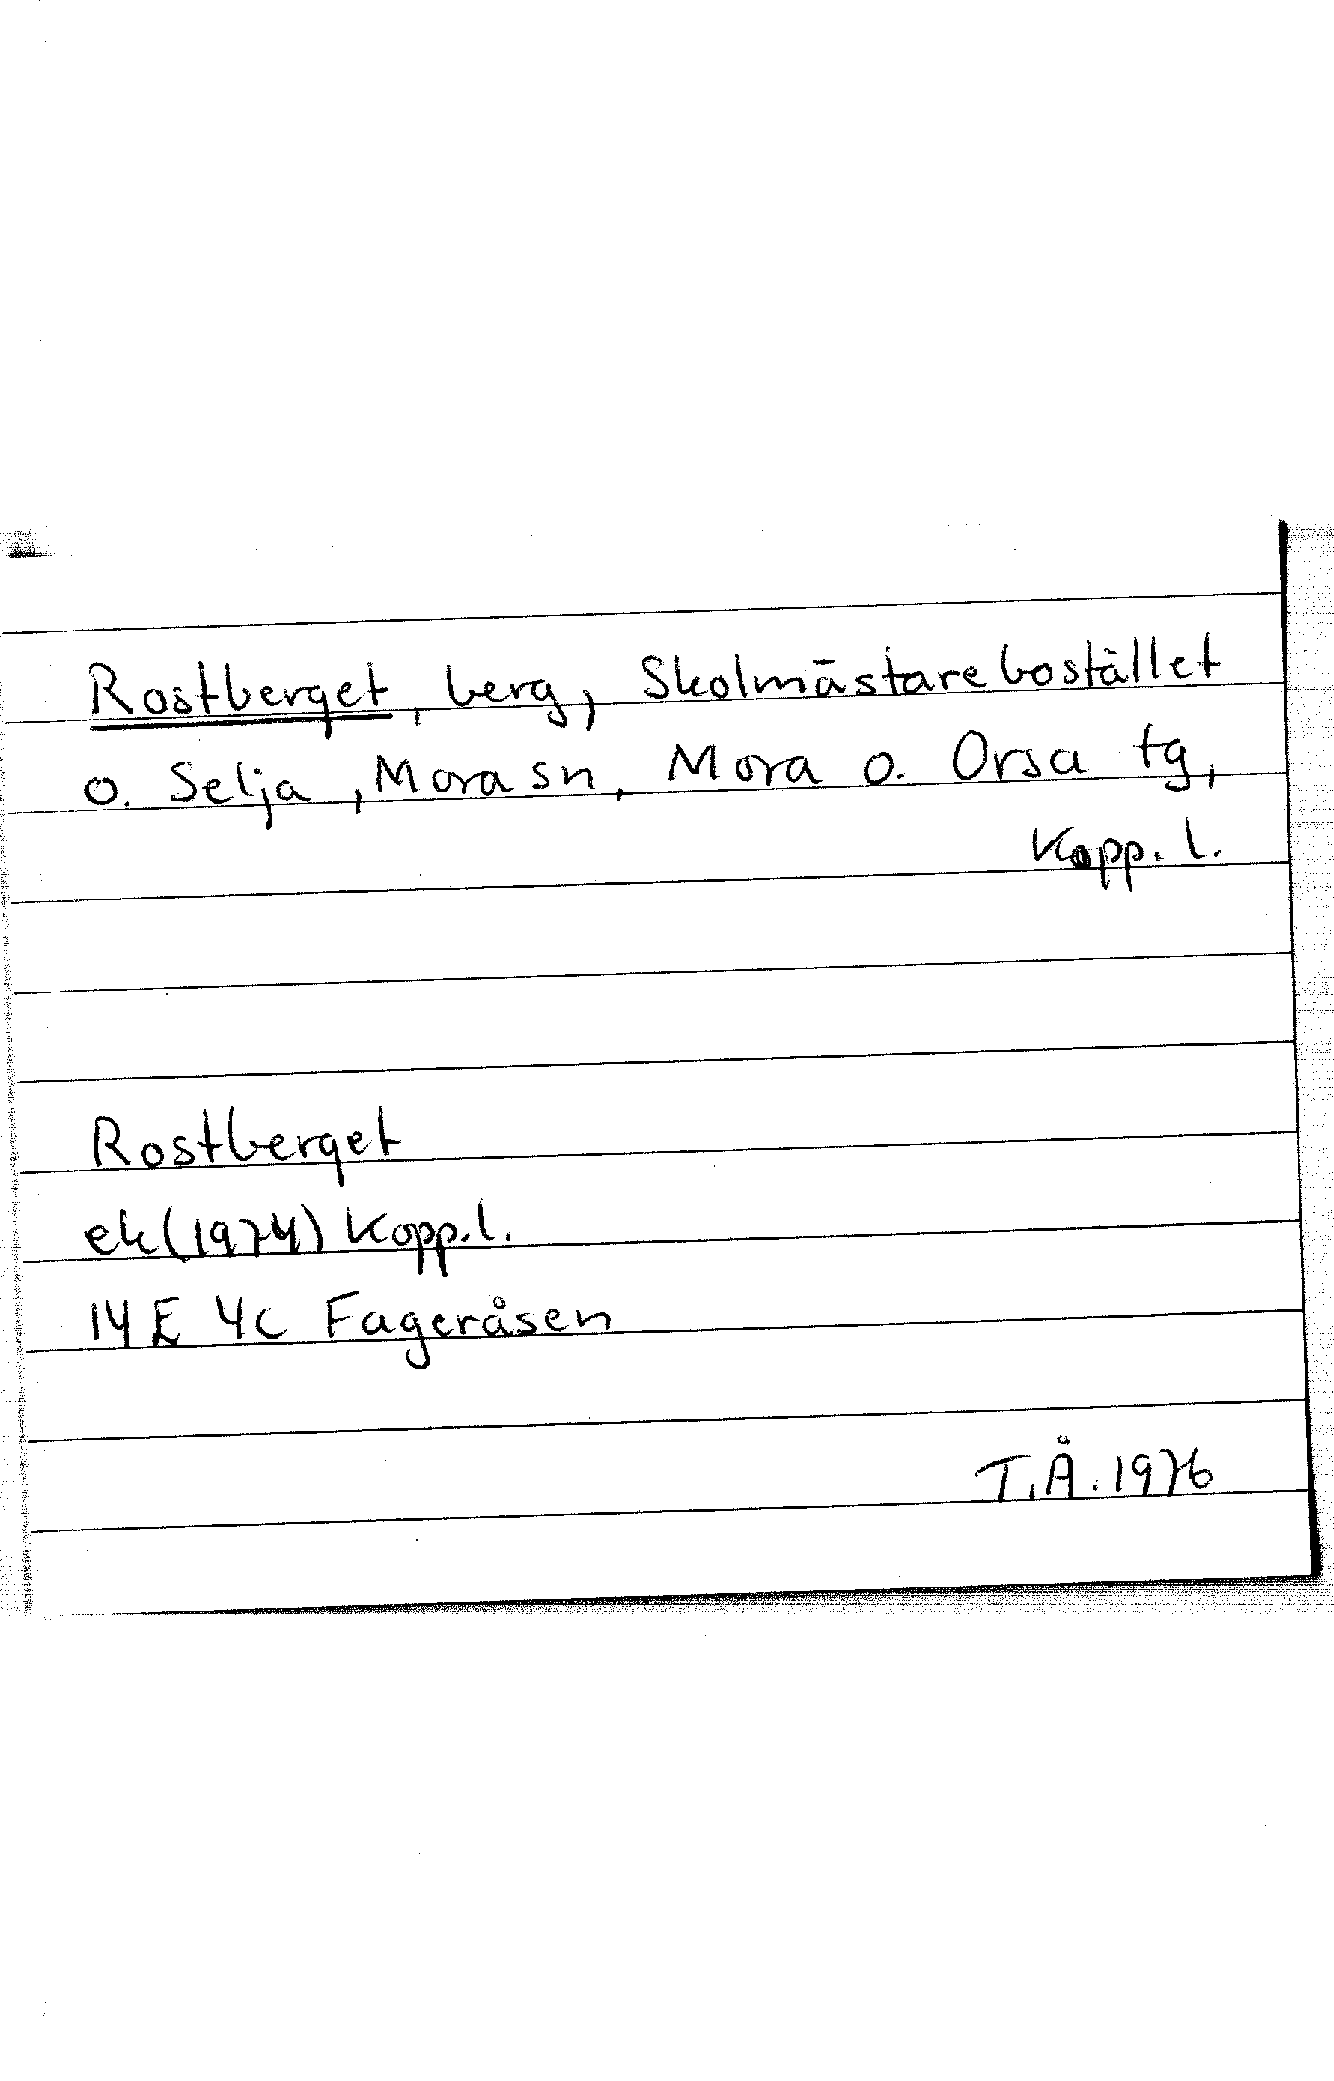 Rostberget, berg, Skolmästarebostället
o. Selja, Mora sn, Mora o. Orsa tg,
Kopp. l.
Rostberget
ek (1974) Kopp.l.
14 E 4c Fageråsen
T.Å. 1976